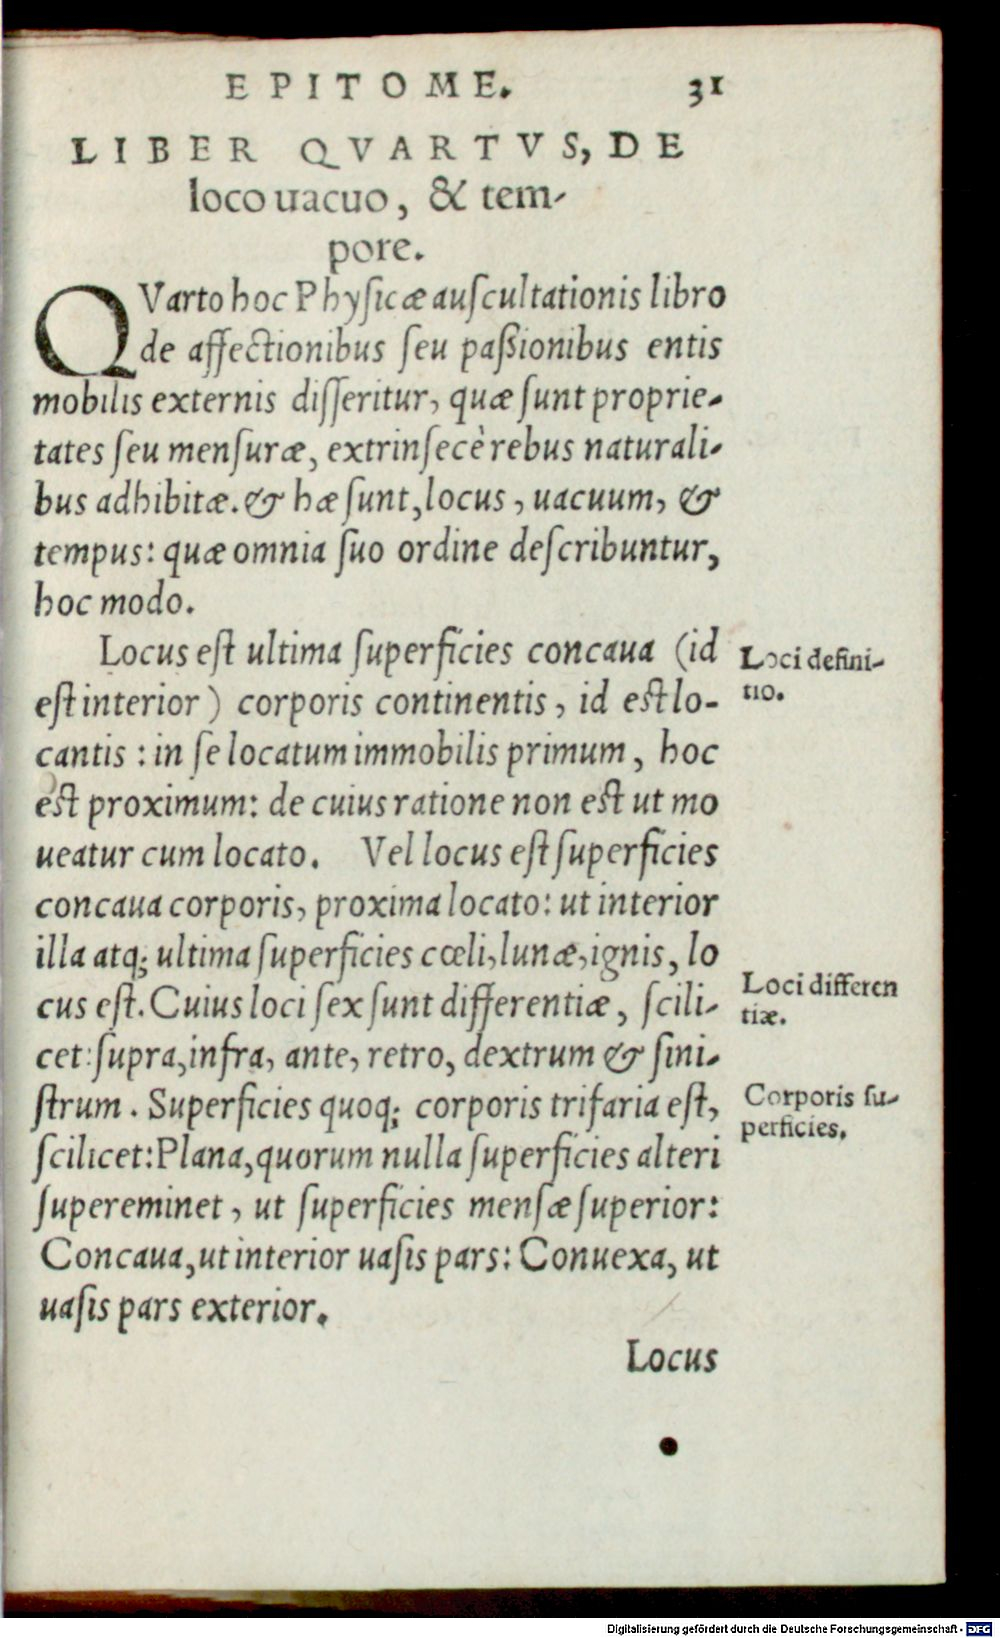 EPITOME. 31
LIBER QVARTVS, DE
loco uacuo, & tem-
pore.
QVarto hoc Physicæ auſcultationis libro
de affectionibus ſeu paßionibus entis
mobilis externis diſſeritur, quæ ſunt proprie-
tates ſeu menſuræ, extrinſecè rebus naturali-
bus adhibitæ. & hæ ſunt, locus, uacuum, &
tempus: quæ omnia ſuo ordine deſcribuntur,
hoc modo.
Locus eſt ultima ſuperficies concaua (id
eſt interior) corporis continentis, id eſt lo-
cantis: in ſe locatum immobilis primum, hoc
eſt proximum: de cuius ratione non eſt ut mo
ueatur cum locato. Vel locus eſt ſuperficies
concaua corporis, proxima locato: ut interior
illa atq; ultima ſuperficies cœli, lunæ, ignis, lo
cus eſt. Cuius loci ſex ſunt differentiæ, ſcili-
cet: ſupra, infra, ante, retro, dextrum & ſini-
ſtrum. Superficies quoq; corporis trifaria eſt,
ſcilicet: Plana, quorum nulla ſuperficies alteri
ſupereminet, ut ſuperficies menſæ ſuperior:
Concaua, ut interior uaſis pars: Conuexa, ut
uaſis pars exterior.
Locus
Loci defini-
tio.
Loci differen
tiæ.
Corporis ſu-
perficies.
Digitalisierung gefördert durch die Deutsche Forschungsgemeinschaft - DFG